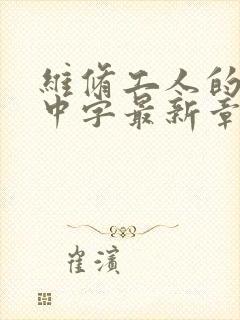 維脩工人的
中字最新章
崔濱